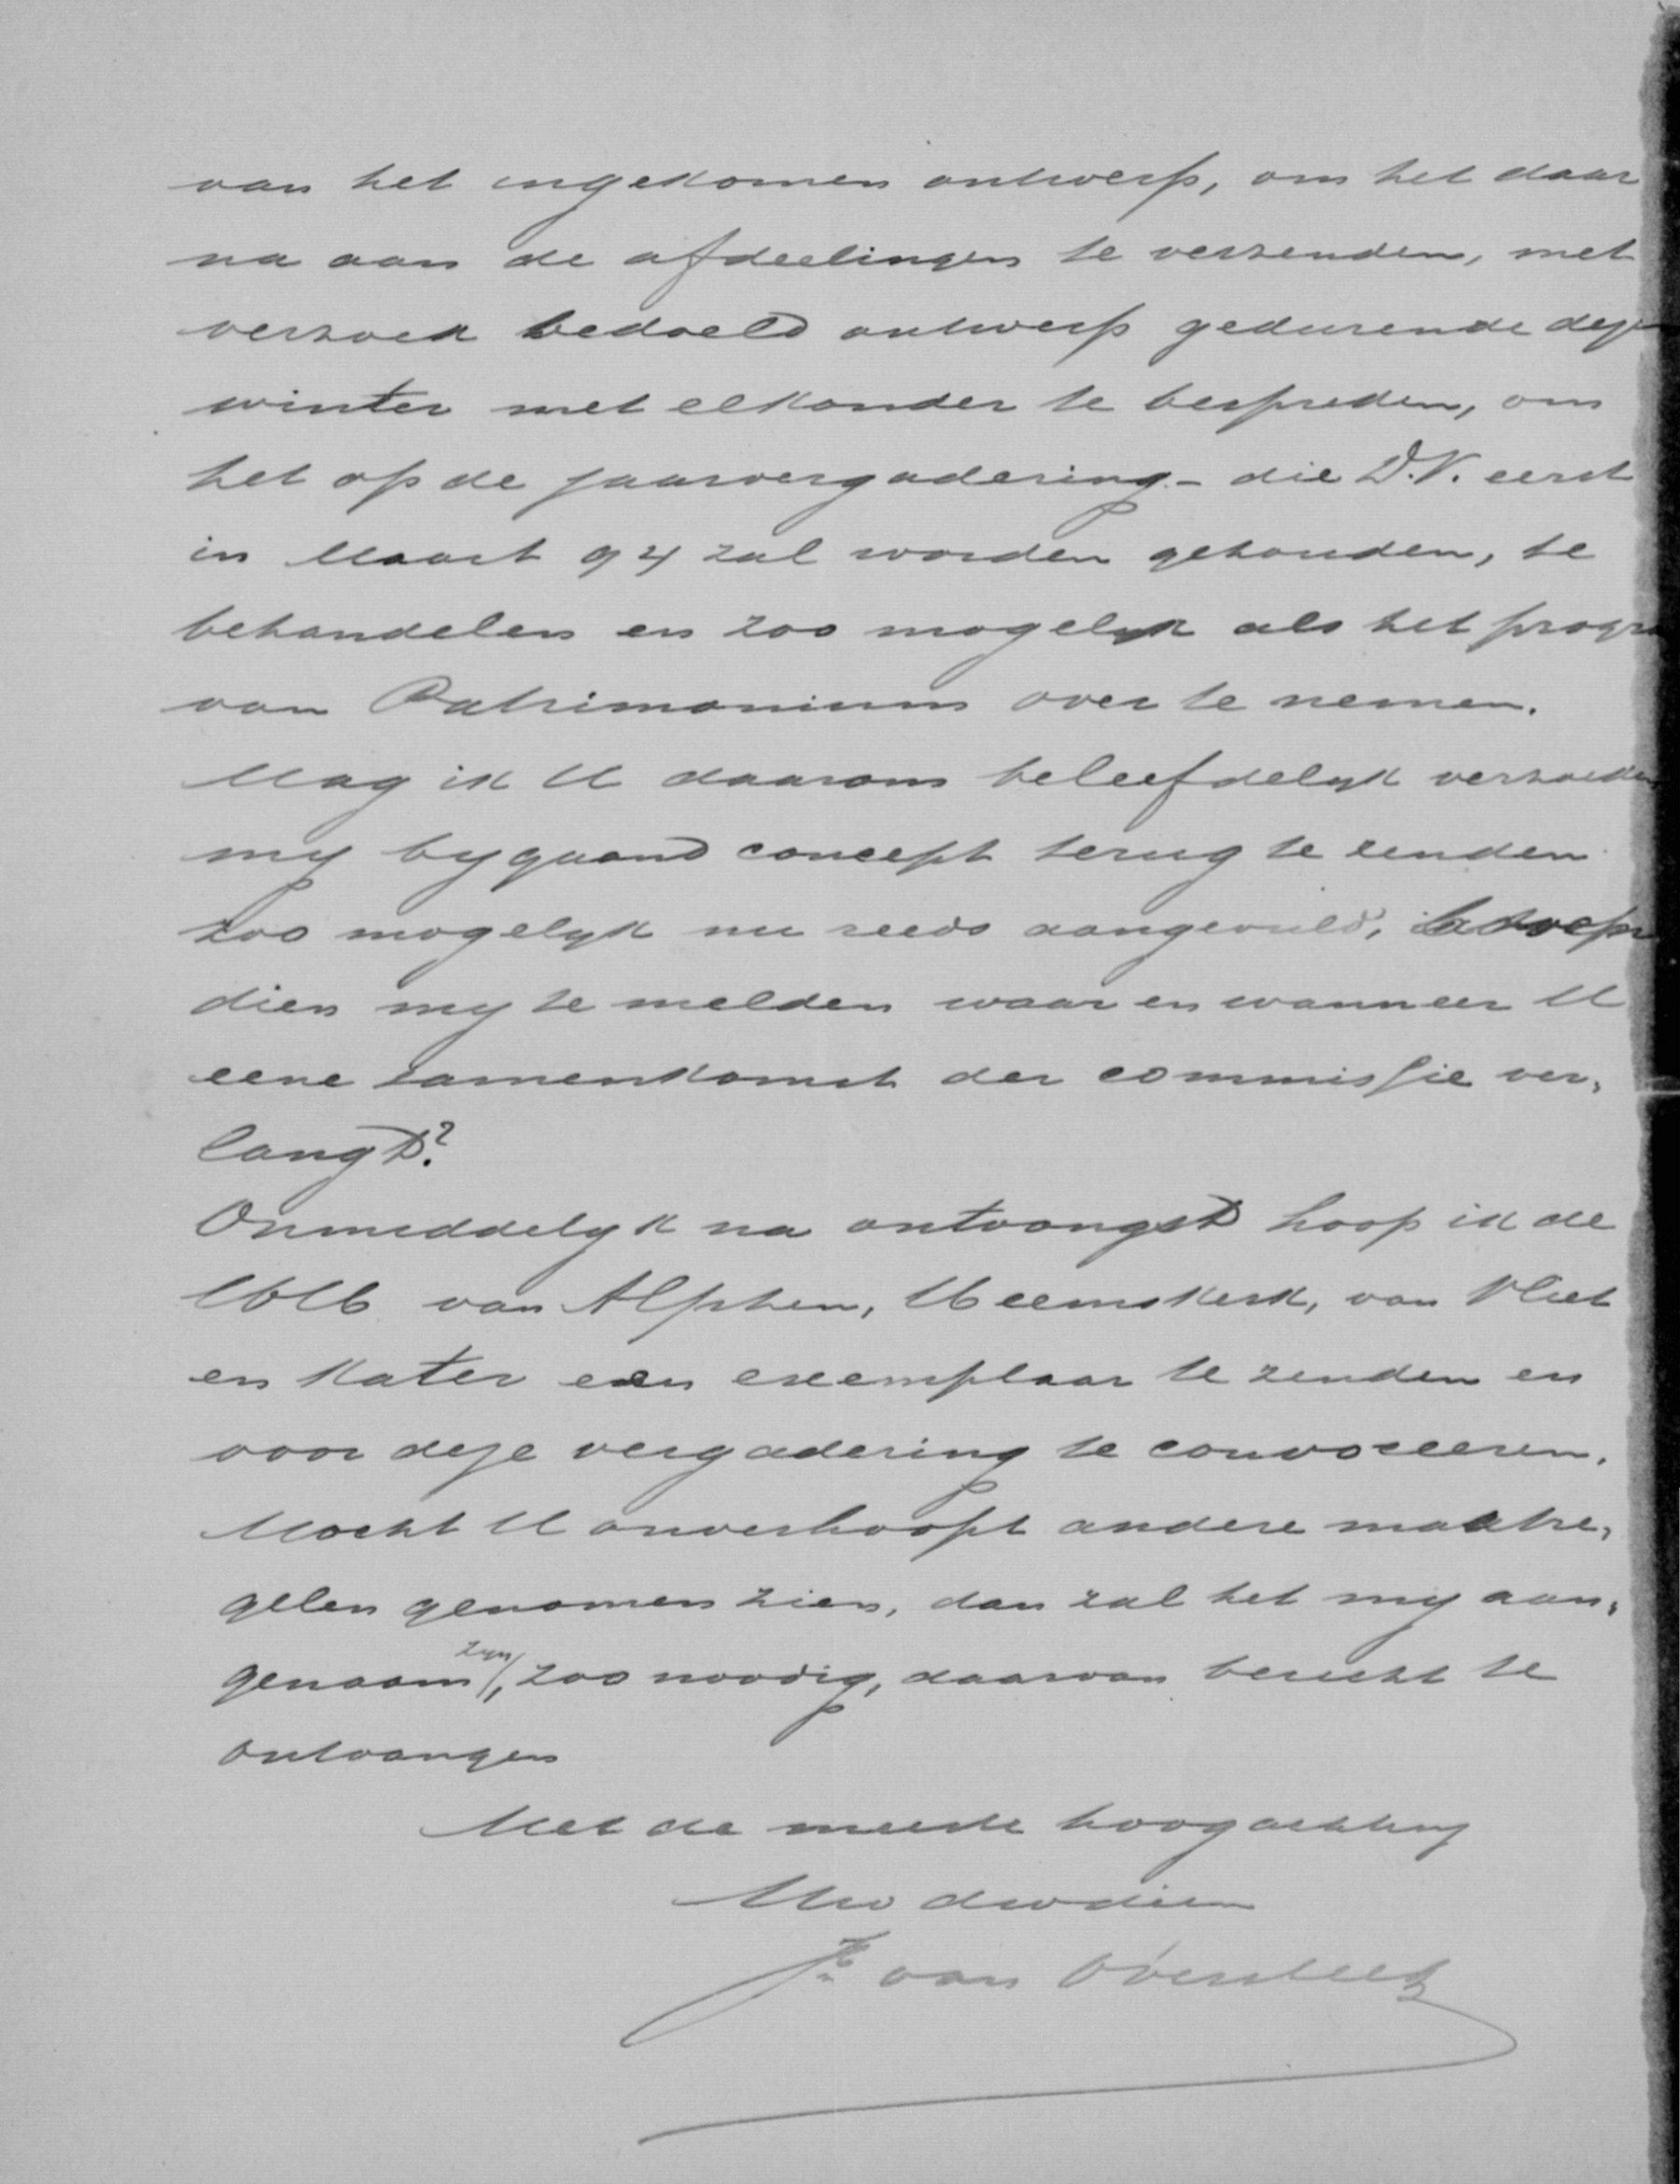 van het ingekomen ontwerp, om het daar
na aan de afdeelingen te verzenden, met
verzoek bedoeld ontwerp gedurende deze
winter met elkander te bespreken, om
het op de jaarvergadering - die D.V. eerst
in Maart 94 zal worden gehouden, te
behandelen en zoo mogelyk als het progr
van Patrimonium over te nemen.
Mag ik U daarom beleefdelyk verzoeken
my bygaand concept terug te zenden
zoo mogelyk nu reeds aangevuld,
dien my te melden waar en wanneer U
eene samenkomst der commissie ver,
langt?
Onmiddelyk na ontvangst hoop ik de
HH van Alphen, Heemskerk, van Vliet
en Kater een exemplaar te zenden en
voor deze vergadering te convoceeren.
Mocht U onverhoopt andere maatre,
gelen genomen zien, dan zal het my aan,
genaam zyn, zoo noodig, daarvan bericht te
ontvangen
Met de meeste hoogachting
Uw dwdien
van Oversteeg